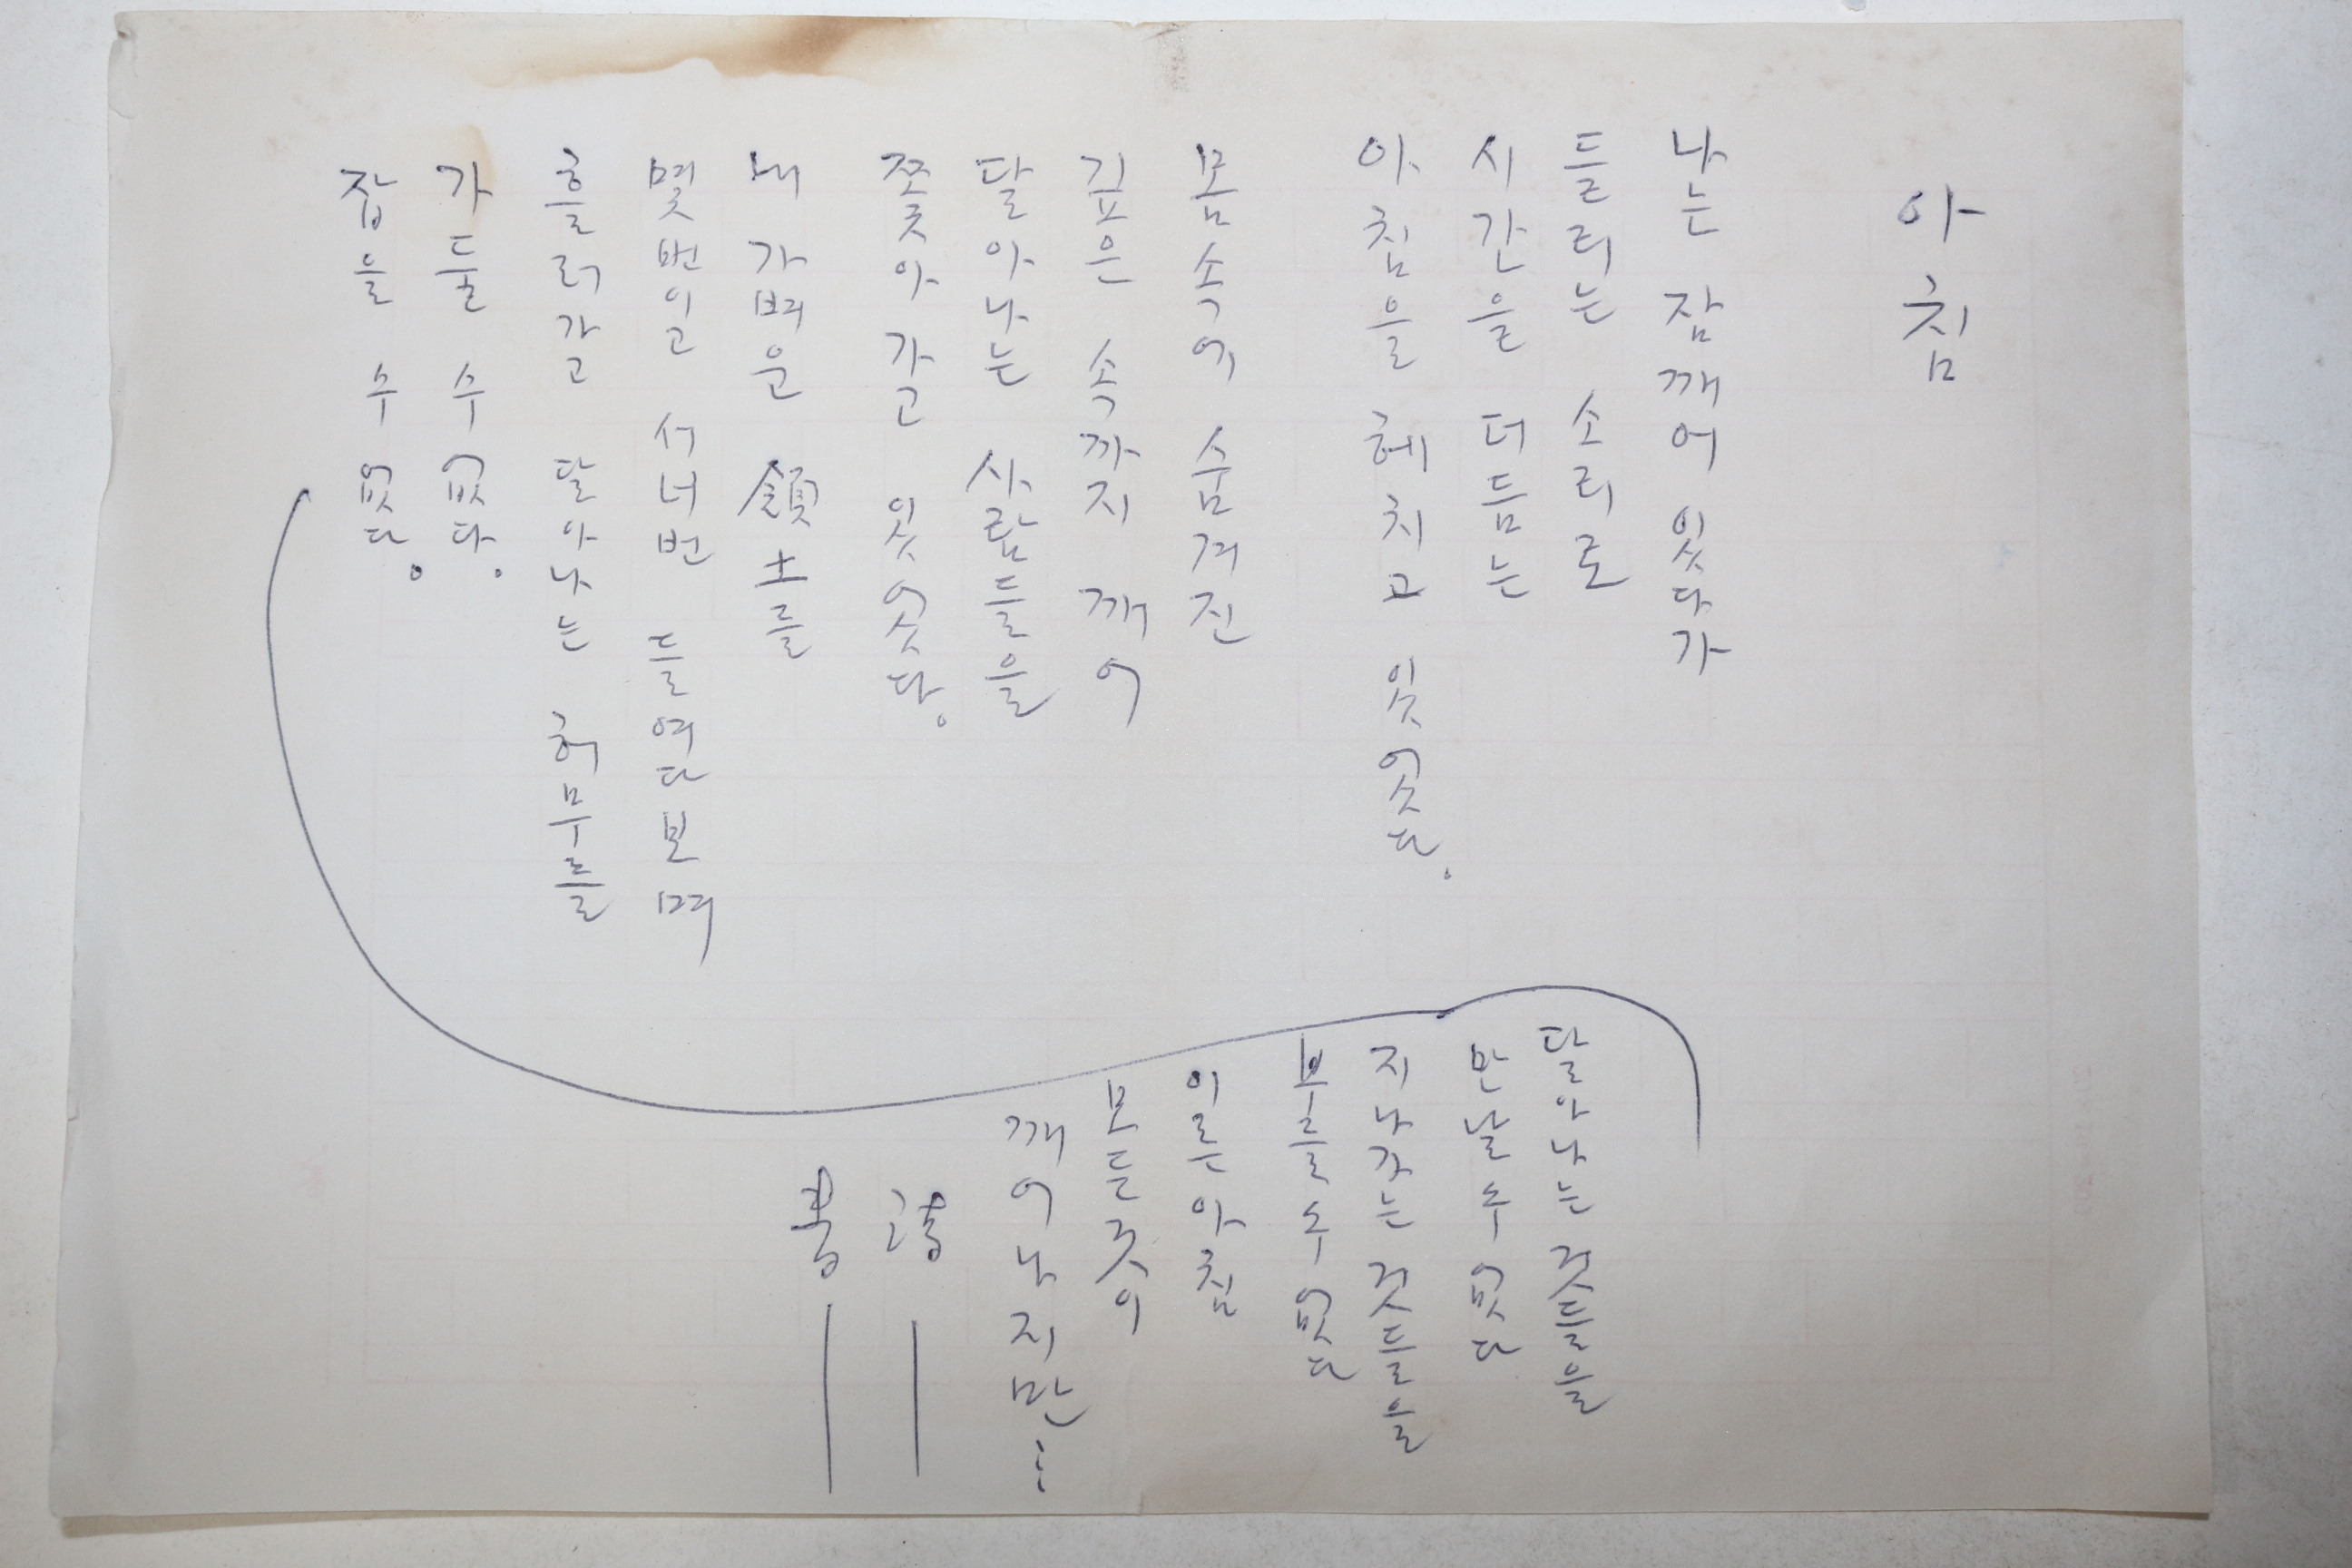 아침
나는 잠깨어 있다가
들리는 소리로
시간을 더듬는
아침을 헤치고 있었다.
몸속에 숨겨진
깊은 속까지 깨어
달아나는 사람들을
쫓아 가고 있었다.
내 가벼운 領土를
몇번이고 서너번 들여다보며
흘러가고 달아나는 허무를
가둘 수 없다.
잡을 수 없다.
달아나는 것들을
만날 수 없다
지나가는 것들을
부를 수 없다
이른 아침
모든 것이
깨어나지만…